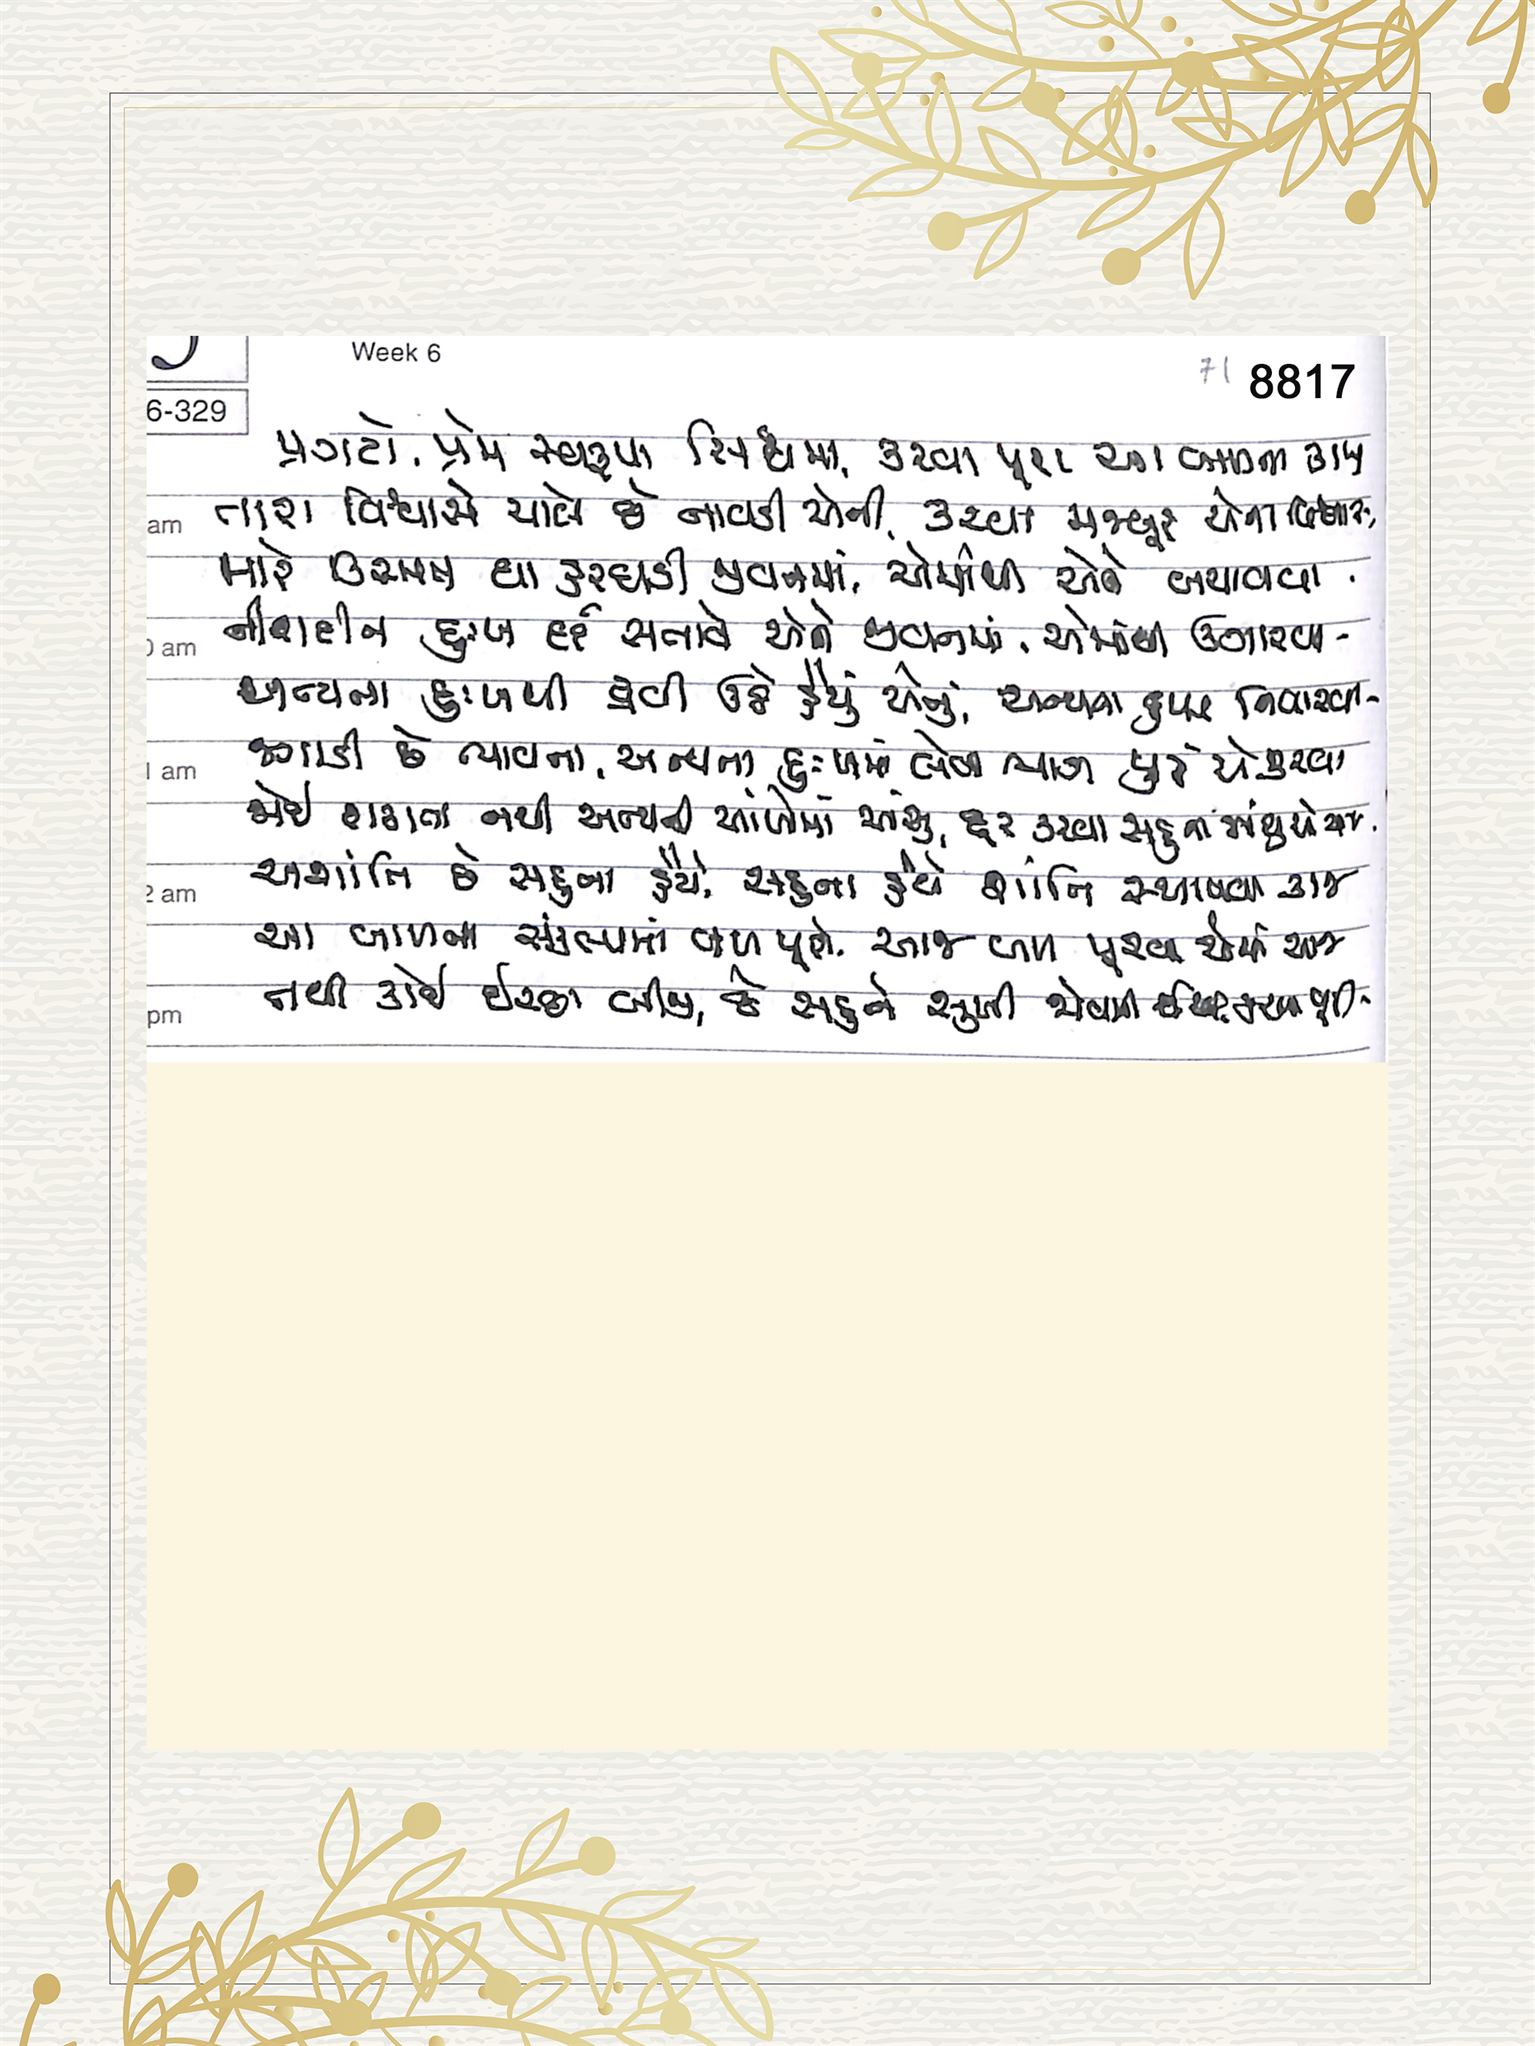 Week 6
71 8817
6-329
પ્રગટો. પ્રેમ સ્વરૂપા સિધ્ધમા, કરવા પૂરા આ બાળના કાજ
am તારા વિશ્વાસે ચાલે છે નાવડી એની, કરવા મજબૂર એના
મારે ઉરમાં ઘા હરઘડી જીવનમાં. એમાંથી એને બચાવવા.
0 am નીશદીન દુઃખ દર્દ સતાવે એને જીવનમાં. એમાંથી ઉગારવા-
અન્યના દુઃખથી દ્રવી ઉઠે હૈયું એનું, અન્યના દુઃખ નિવારવા-
1 am જગાડી છે ભાવના. અન્યના દુઃખમાં લેવા ભાગ પુરું એ કરવા
જોઈ શકાતા નથી અન્યની આંખોમાં આંસુ, દૂર કરવા સહુના આંસુએ આજ.
2 am અશાંતિ છે સહુના હૈયે. સહુના હૈયે શાંતિ સ્થાપવા કાજ
આ બાળના સંકલ્પમાં બળ પૂરો. આજ બળ પૂરવા એમાં આજ
pm નથી કોઈ ઈચ્છા બીજી, કે સહુને સુખી જોવાની પૂરી-